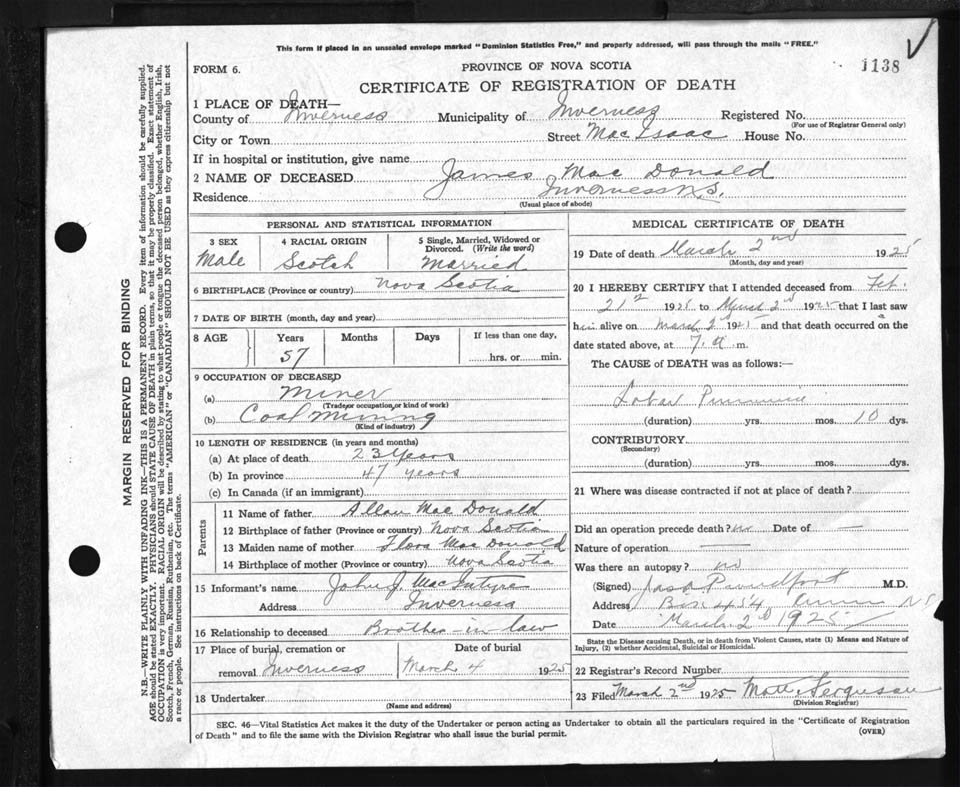 This form if placed in an unsealed envelope marked "Dominion Statistics Free," and properly addressed, will pass through the mails "FREE."
FORM 6.
PROVINCE OF NOVA SCOTIA
1138
CERTIFICATE OF REGISTRATION OF DEATH
1 PLACE OF DEATH—
County of Inverness Municipality of Inverness Registered No.
(For use of Registrar General only)
City or Town Street Mac Isaac House No.
If in hospital or institution, give name
2 NAME OF DECEASED James Mac Donald
Residence Inverness N.S.
(Usual place of abode)
PERSONAL AND STATISTICAL INFORMATION
3 SEX
Male
4 RACIAL ORIGIN
Scotch
5 Single, Married, Widowed or
Divorced. (Write the word)
Married
6 BIRTHPLACE (Province or country) Nova Scotia
7 DATE OF BIRTH (month, day and year)
8 AGE
Years
57
Months
Days
If less than one day,
hrs. or min.
9 OCCUPATION OF DECEASED
(a) Miner
(Trade, or occupation, or kind of work)
(b) Coal Mining
(Kind of industry)
10 LENGTH OF RESIDENCE (in years and months)
(a) At place of death 23 Years
(b) In province 47 years
(c) In Canada (if an immigrant)
Parents
11 Name of father Allan Mac Donald
12 Birthplace of father (Province or country) Nova Scotia
13 Maiden name of mother Flora Mac Donald
14 Birthplace of mother (Province or country) Nova Scotia
15 Informant's name John J. MacIntyre
Address Inverness
16 Relationship to deceased Brother-in law
17 Place of burial, cremation or Date of burial
removal Inverness March 4 1925
18 Undertaker
(Name and address)
MEDICAL CERTIFICATE OF DEATH
19 Date of death March 2nd 1925
(Month, day and year)
20 I HEREBY CERTIFY that I attended deceased from Feb.
21st 1925 to March 2nd 1925 that I last saw
him alive on March 2d 1925 and that death occurred on the
date stated above, at 7 a m.
The CAUSE of DEATH was as follows:—
Lobar
(duration) yrs. mos. 10 dys.
CONTRIBUTORY
(Secondary)
(duration) yrs. mos. dys.
21 Where was disease contracted if not at place of death?
Did an operation precede death? no Date of —
Nature of operation —
Was there an autopsy? no
(Signed) M.D.
Address Box 454 N S
Date March. 2d 1925
State the Disease causing Death, or in death from Violent Causes, state (1) Means and Nature of
Injury, (2) whether Accidental, Suicidal or Homicidal.
22 Registrar's Record Number
23 Filed March 2nd 1925 Matt. Ferguson
(Division Registrar)
SEC. 46—Vital Statistics Act makes it the duty of the Undertaker or person acting as Undertaker to obtain all the particulars required in the "Certificate of Registration
of Death" and to file the same with the Division Registrar who shall issue the burial permit.
(OVER)
MARGIN RESERVED FOR BINDING
N.B.—WRITE PLAINLY WITH UNFADING INK—THIS IS A PERMANENT RECORD. Every item of information should be carefully supplied.
AGE should be stated EXACTLY. PHYSICIANS should STATE CAUSE OF DEATH in plain terms, so that it may be properly classified. Exact statement of
OCCUPATION is very important. RACIAL ORIGIN will be described by stating to what people or tongue the deceased person belonged, whether English, Irish,
Scotch, French, German, Russian, Ruthenian, etc. The terms "AMERICAN" or "CANADIAN" SHOULD NOT BE USED as they express citizenship but not
a race or people. See instructions on back of Certificate.